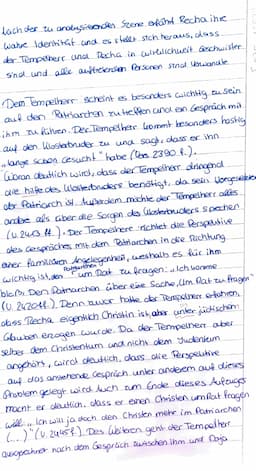 Nach der zu analysierenden Szene erfährt Recha ihre
wahre Identität und es stellt sich heraus, dass
der Tempelherr und Recha in Wirklichkeit Geschwister
sind und alle auftretenden Personen sind Verwandte
Dem Tempelherr scheint es besonders wichtig zu sein
auf den Patriarchen zu treffen und ein Gespräch mit
ihm zu führen. Der Tempelherr kommt besonders hastig
auf den Klosterbruder zu und sagt, dass er ihn
"lange schon gesucht" habe (Vers 2390 f.).
Woran deutlich wird, dass der Tempelherr dringend
die Hilfe des Klosterbruders benötigt, da sein Vorgesetzter
der Patriarch ist. Außerdem möchte der Tempelherr alles
andere als über die Sorgen des Klosterbruders sprechen
(V. 2413 ff.). Der Tempelherr richtet die Perspektive
des Gespräches mit dem Patriarchen in die Richtung
einer familiären Angelegenheit, weshalb es für ihm
wichtig ist, den Patriarchen um Rat zu fragen: "Ich komme
bloß, Den Patriarchen über eine Sache, (um Rat zu fragen"
(V. 2420 ff.). Denn zuvor hatte der Tempelherr erfahren,
dass Recha eigentlich Christin ist, aber unter jüdischem
Glauben erzogen wurde. Da der Tempelherr aber
selber dem Christentum und nicht dem Judentum
angehört, wird deutlich, dass die Perspektive
auf das anstehende Gespräch unter anderem auf dieses
Problem gelegt wird. Auch zum Ende dieses Aufzuges
macht er deutlich, dass er einen Christen um Rat fragen
will: "Ich will ja doch den Christen mehr im Patriarchen
(...)" (V. 2445 f.). Des Weiteren geht der Tempelherr
ausgehend nach dem Gespräch zwischen ihm und Daja